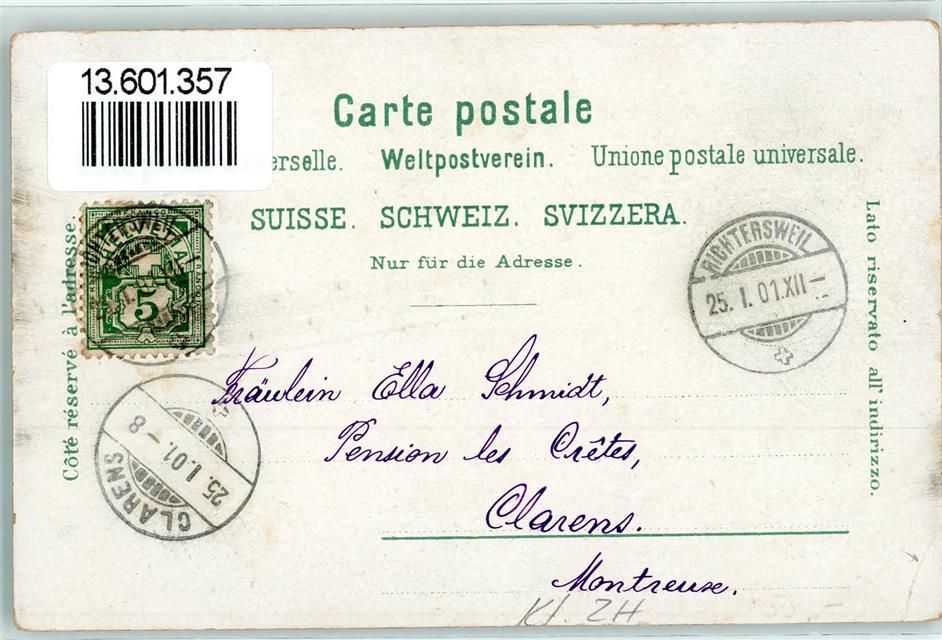 13.601.357
Carte postale
erselle. Weltpostverein. Unione postale universale.
SUISSE. SCHWEIZ. SVIZZERA.
Nur für die Adresse.
Côté réservé à l'adresse.
Lato riservato all' indirizzo.
FRANCO
5
RICHTERSWEIL
25. I. 01. XII –
CLARENS
25. I. 01. – 8
Fräulein Ella Schmidt,
Pension les Crêtes,
Clarens.
Montreux.
Kt. ZH